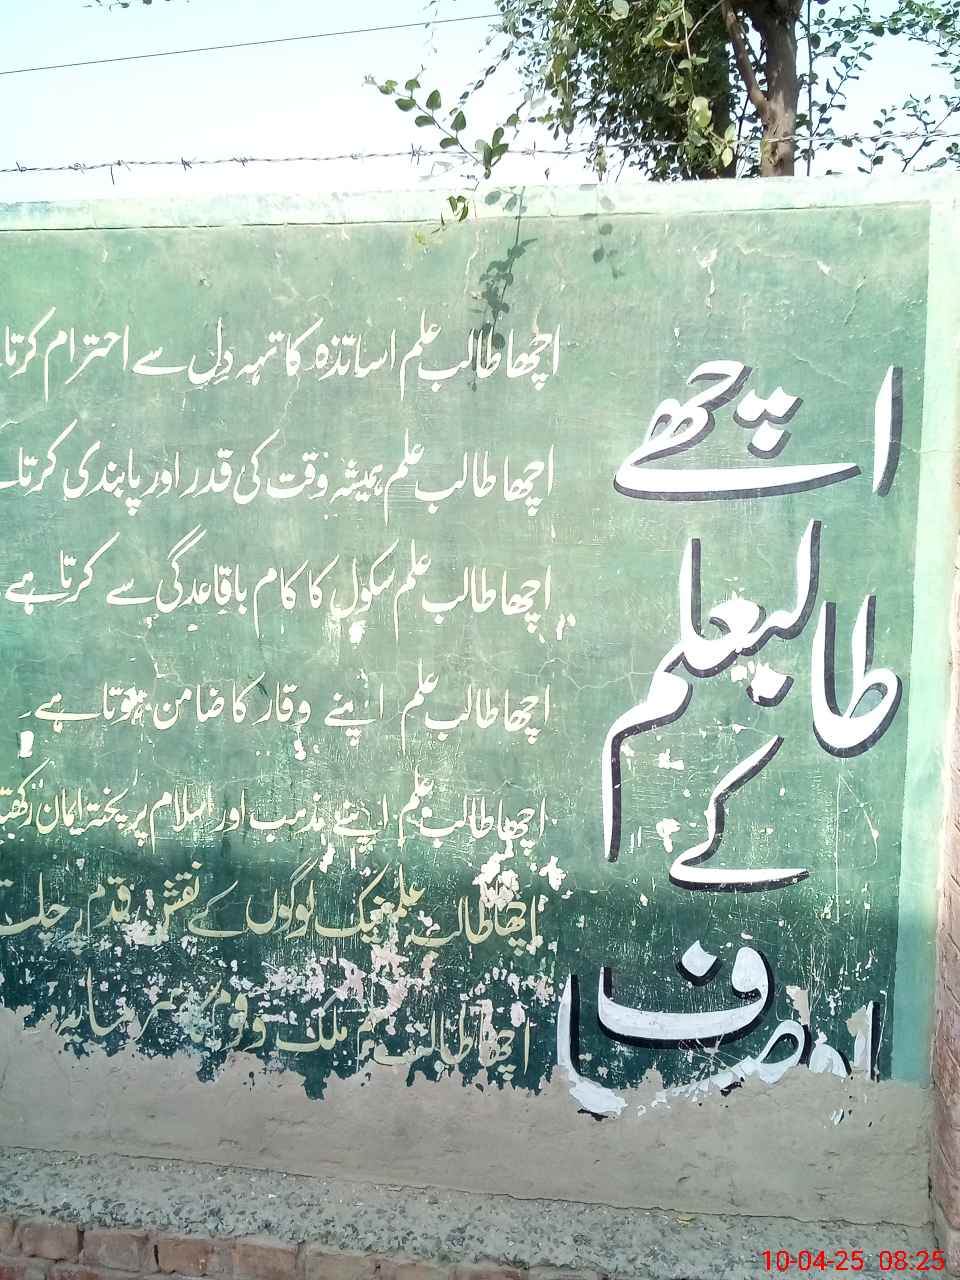 اچھے
طالبعلم
کے
اوصاف
اچھا طالب علم اساتذہ کا تہہ دل سے احترام کرتا
اچھا طالب علم ہمیشہ وقت کی قدر اور پابندی کرتا
اچھا طالب علم سکول کا کام باقاعدگی سے کرتا ہے۔
اچھا طالب علم اپنے وقار کا ضامن ہوتا ہے۔
اچھا طالب علم اپنے مذہب اور اسلام پر پختہ ایمان رکھتا
اچھا طالب علم نیک لوگوں کے نقش قدم پر چلتا
اچھا طالب علم ملک و قوم کا سرمایہ
10-04-25 08:25